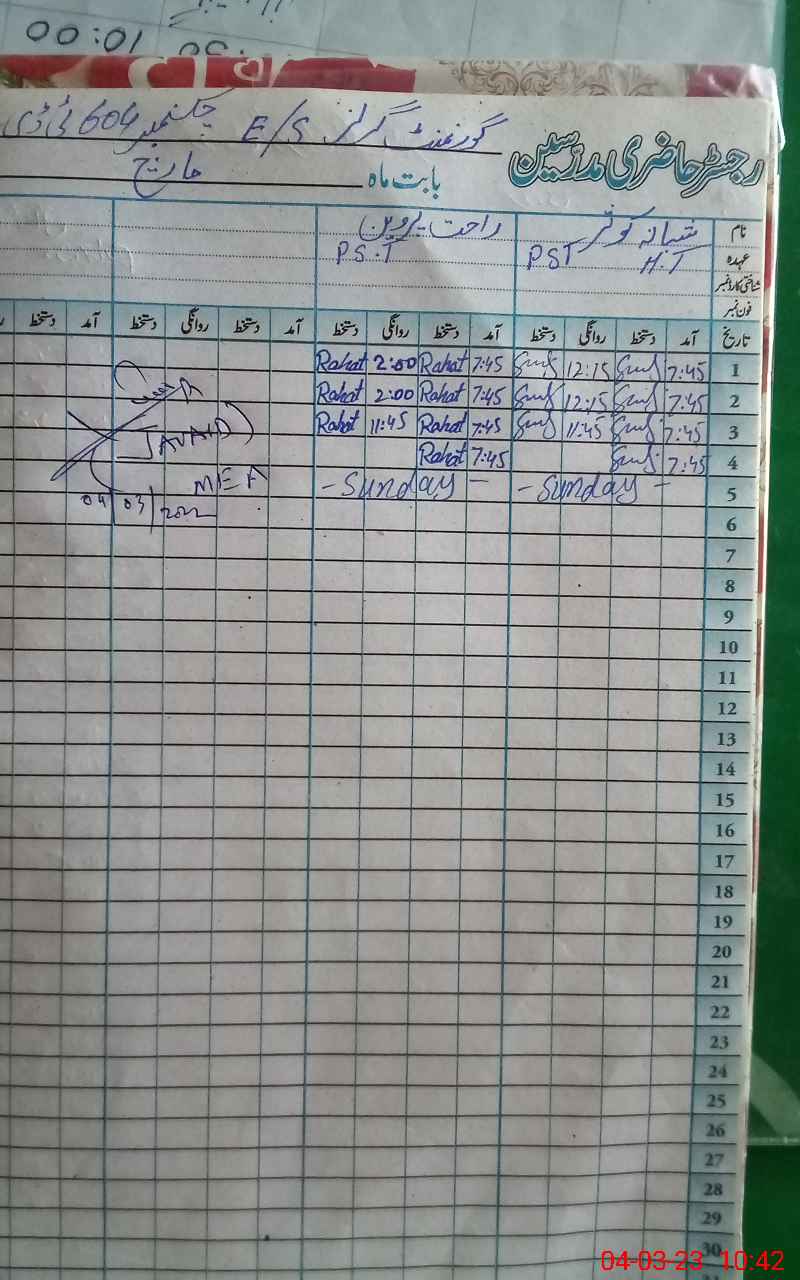 00:01
رجسٹر حاضری مدرسین گورنمنٹ گرلز E/S چک نمبر 604 ٹی ڈی
بابت ماہ مارچ
نام شبانہ کوثر راحت پروین
عہدہ H.T PST P.S.T
شناختی کارڈ نمبر
فون نمبر
تاریخ آمد دستخط روانگی دستخط آمد دستخط روانگی دستخط آمد دستخط روانگی دستخط آمد دستخط
1 7:45 12:15 7:45 Rahat 2:00 Rahat
2 7:45 12:15 7:45 Rahat 2:00 Rahat
3 7:45 11:45 7:45 Rahat 11:45 Rahat
4 7:45 7:45 Rahat
5 - Sunday - - Sunday -
(JAVAID)
MEA
04 03 2022
6
7
8
9
10
11
12
13
14
15
16
17
18
19
20
21
22
23
24
25
26
27
28
29
30
04-03-23 10:42